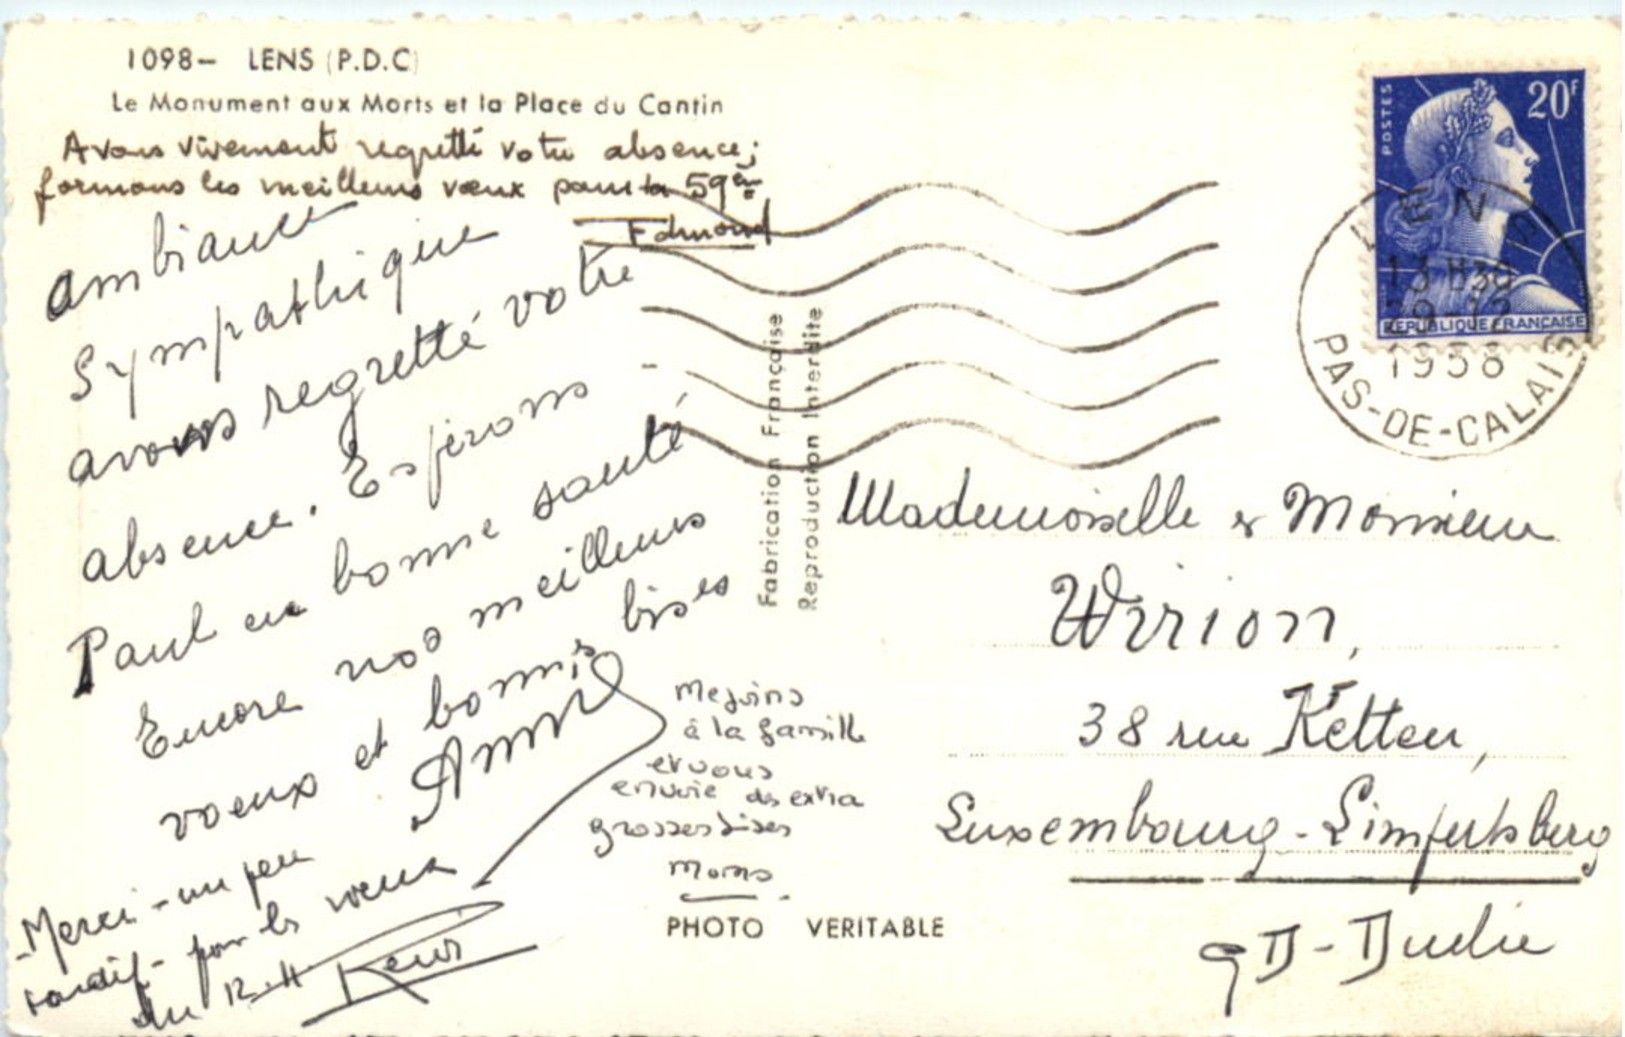 1098- LENS (P.D.C)
Le Monument aux Morts et la Place du Cantin
Avons vivement regretté votre absence;
formons les meilleurs vœux pour la 59ème
Edmond
Ambiance
Sympathique
avons regretté votre
absence. Espérons
Paul en bonne santé
Encore nos meilleurs
voeux et bonnes bises
-Merci - un peu
tardif - pour les voeux
du 12-11
René
à la famille
et vous
envoie des extra
grosses bises
Fabrication Française
Reproduction Interdite
PHOTO VERITABLE
POSTES
20F
REPUBLIQUE FRANÇAISE
LENS
13 H30
29-12
1958
PAS-DE-CALAIS
Mademoiselle et Monsieur
Wirion,
38 rue Ketten,
Luxembourg-Limpertsberg
GD-Duché